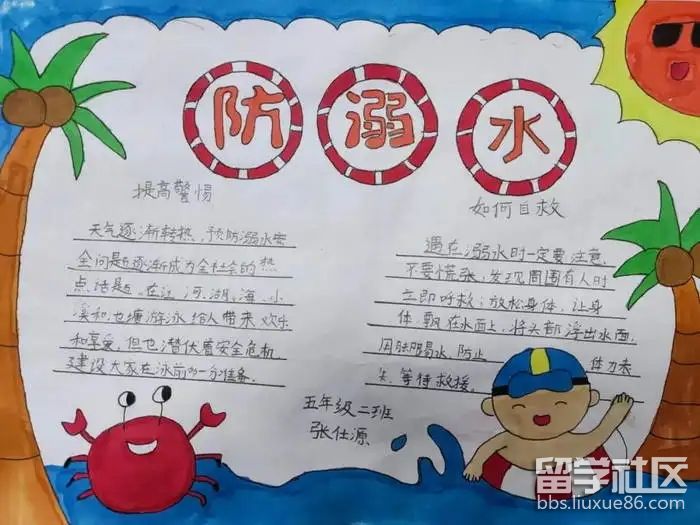 防溺水
提高警惕
天气逐渐转热，预防溺水安
全问题逐渐成为全社会的热
点话题。在江、河、湖、海、小
溪和池塘游泳给人带来欢乐
和享受，但也潜伏着安全危机
建设大家在泳前 一分准备。
如何自救
遇在溺水时一定要注意，
不要慌张，发现周围有人时
立即呼救；放松身体，让身
体飘在水面上，将头部浮出水面，
用脚踢水，防止 体力丧
失，等待救援。
五年级二班
张仕源
留学社区
bbs.liuxue86.com